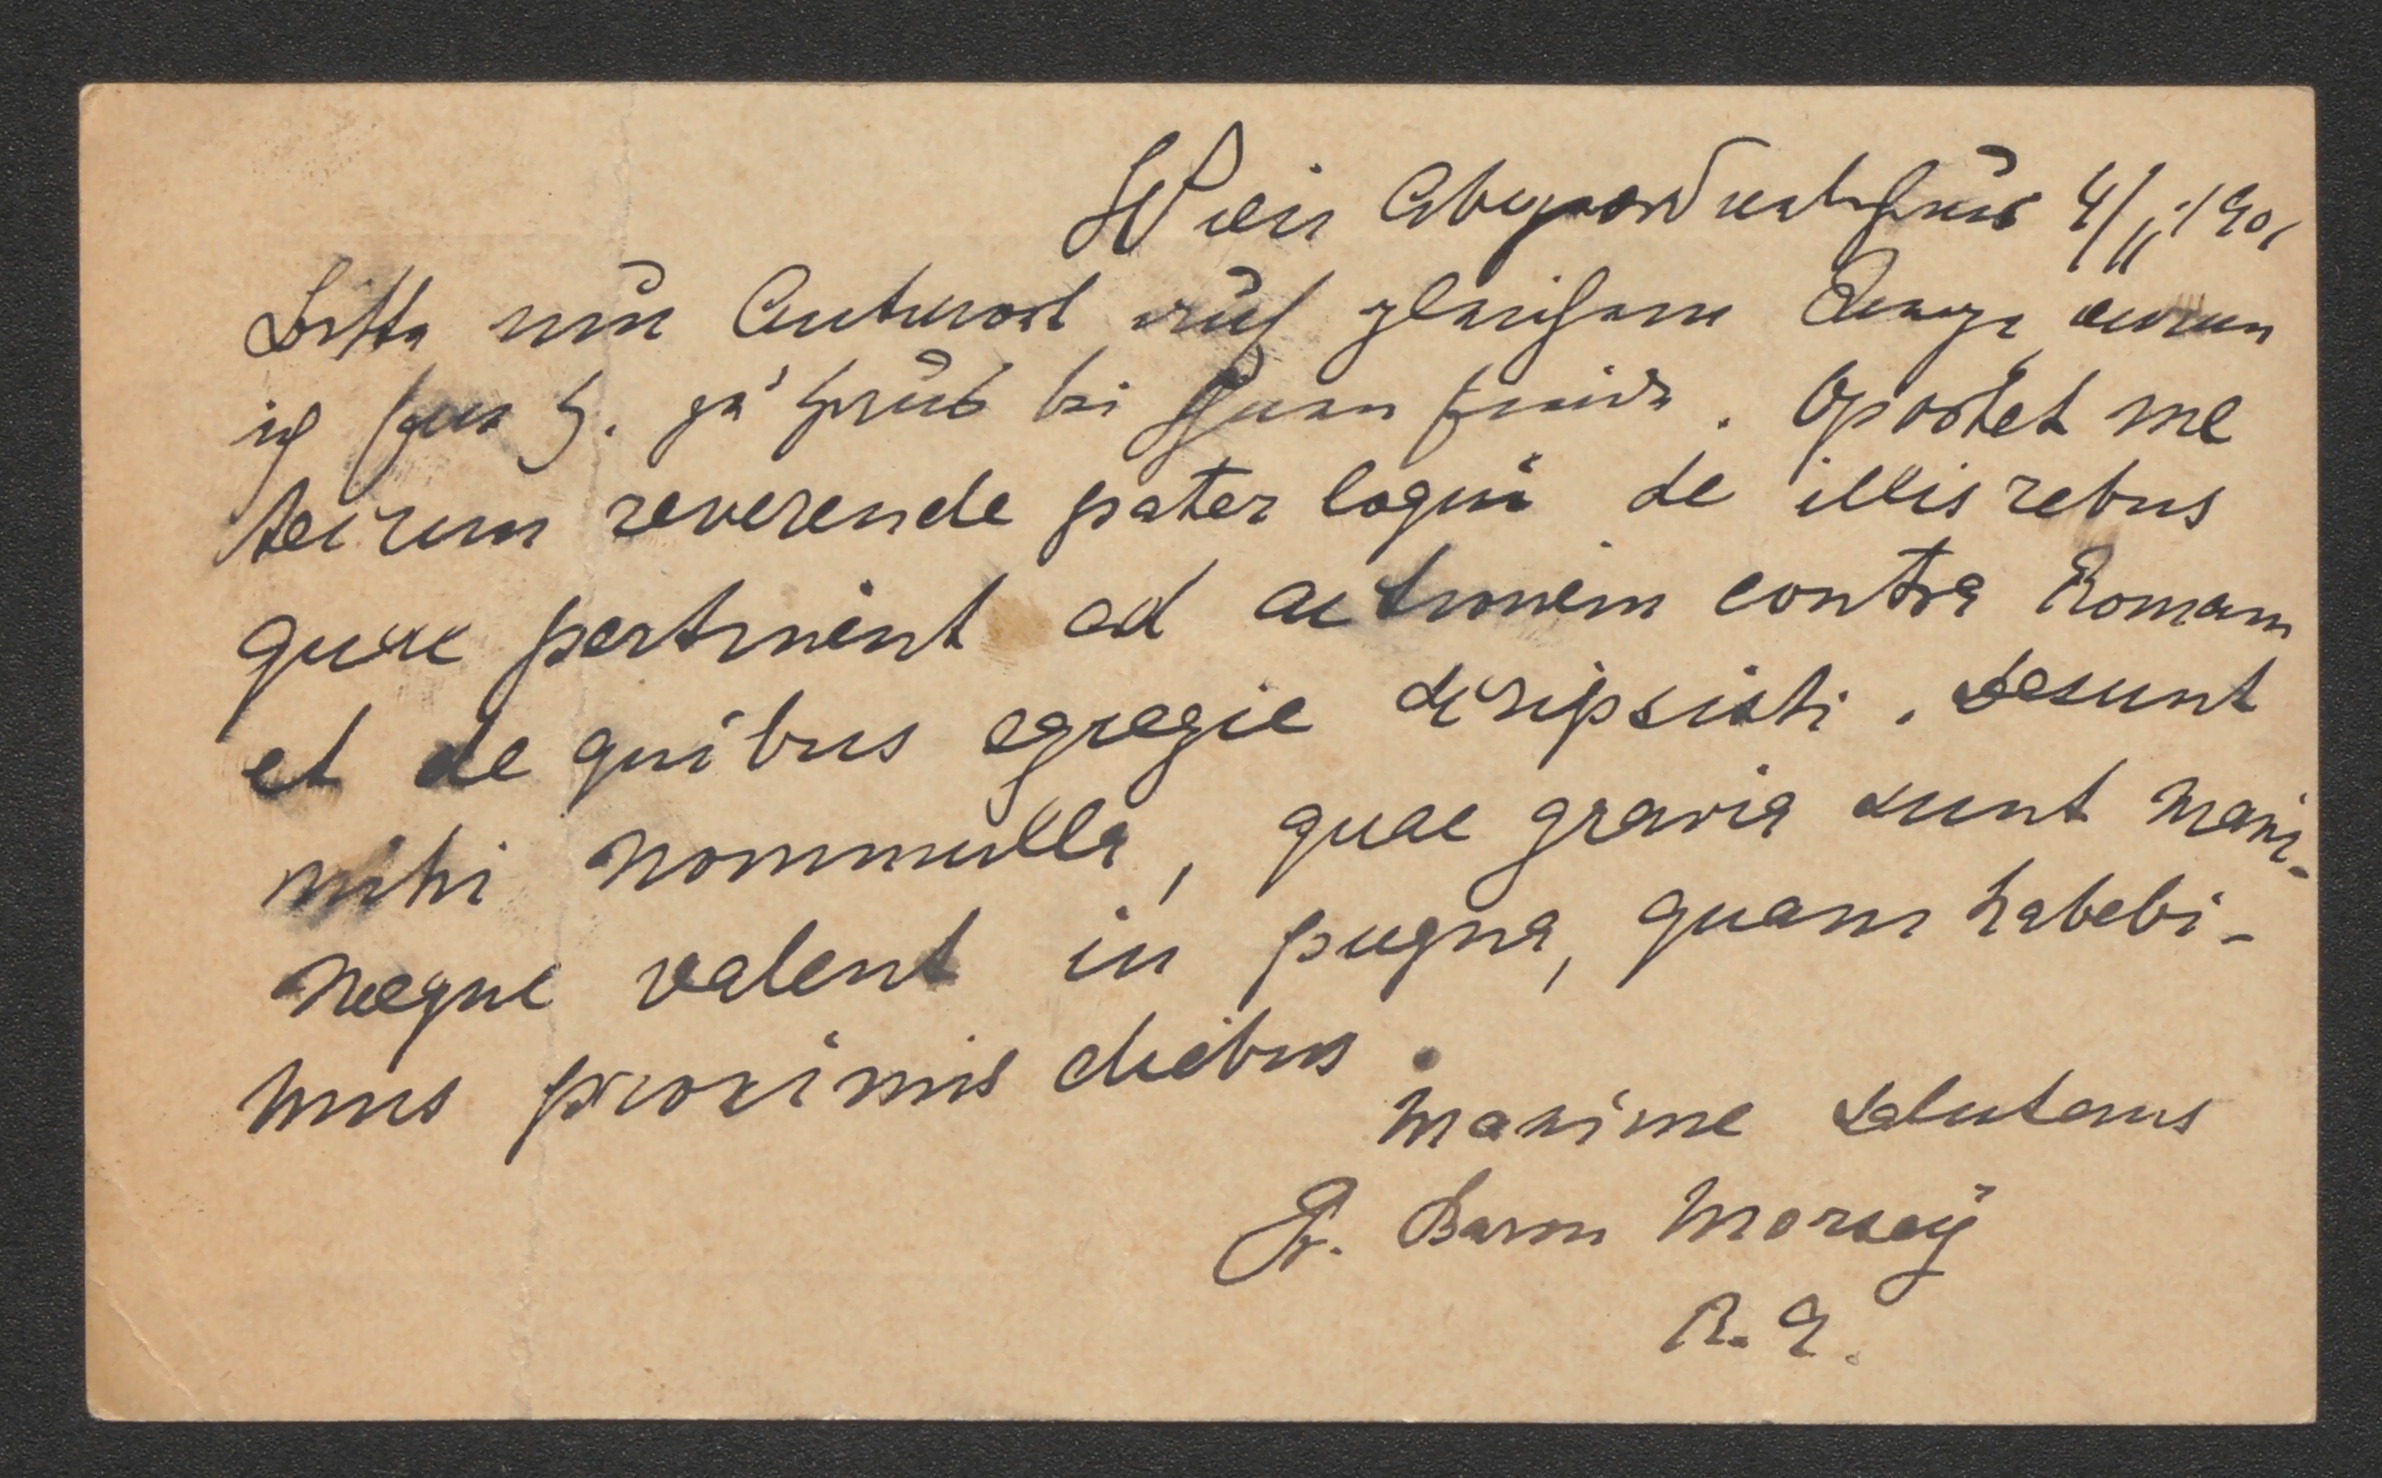 Wien Abgeordnetenhaus 4/II. 190
Bitte um Antwort auf gleichem Wege wenn
ich Hr. H. zu Haus bei Ihnen finde. Oportet me
tecum reverende pater loqui de illis rebus
quae pertinent ad actionem contra Romam
et de quibus egregie scripsisti. Desunt
mihi nonnulla, quae gravia sunt maxi-
meque valent in pugna, quam habebi-
mus proximis diebus.
Maxime salutans
Fr. Baron Morsey
R. A.